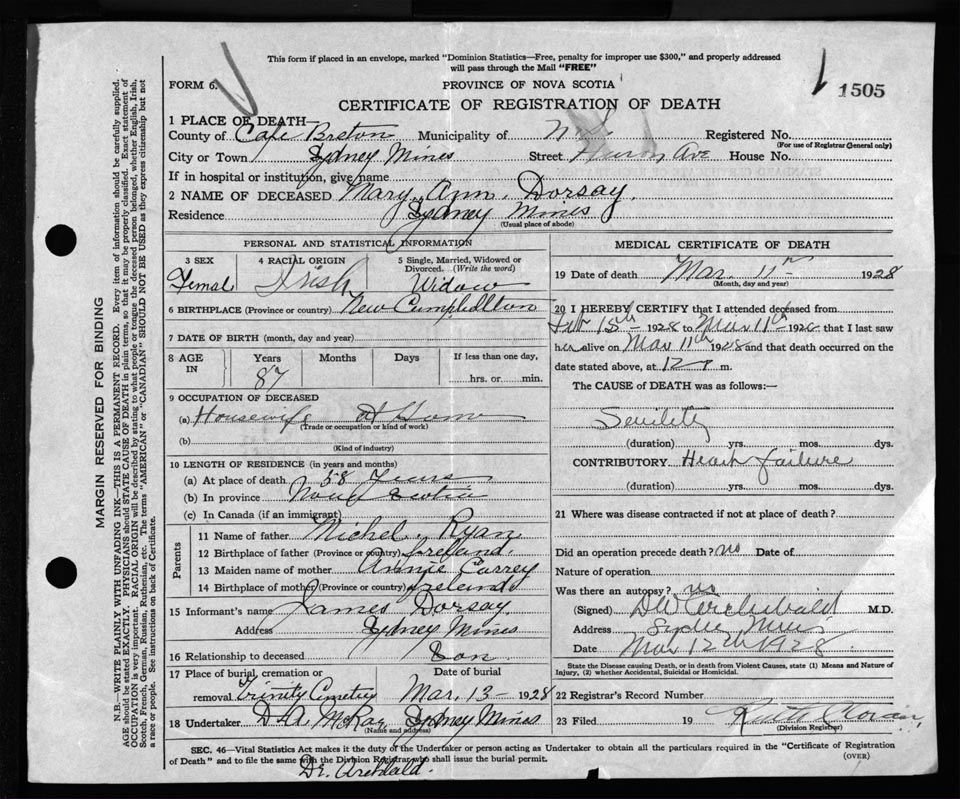 This form if placed in an envelope, marked "Dominion Statistics—Free, penalty for improper use $300," and properly addressed
will pass through the Mail "FREE"
FORM 6.
PROVINCE OF NOVA SCOTIA
1505
CERTIFICATE OF REGISTRATION OF DEATH
1 PLACE OF DEATH
County of Cape Breton Municipality of N.S. Registered No.
(For use of Registrar General only)
City or Town Sydney Mines Street Ave House No.
If in hospital or institution, give name
2 NAME OF DECEASED Mary Ann Dorsay
Residence Sydney Mines
(Usual place of abode)
PERSONAL AND STATISTICAL INFORMATION
3 SEX Femal
4 RACIAL ORIGIN Irish
5 Single, Married, Widowed or Divorced. (Write the word) Widow
6 BIRTHPLACE (Province or country) New Campbellton
7 DATE OF BIRTH (month, day and year)
8 AGE IN Years Months Days If less than one day,
87 hrs. or min.
9 OCCUPATION OF DECEASED
(a) Housewife at Home
(Trade or occupation or kind of work)
(b)
(Kind of industry)
10 LENGTH OF RESIDENCE (in years and months)
(a) At place of death 58 Years
(b) In province Nova Scotia
(c) In Canada (if an immigrant)
Parents
11 Name of father Michel Ryan
12 Birthplace of father (Province or country) Ireland.
13 Maiden name of mother Annie Carrey
14 Birthplace of mother (Province or country) Ireland
15 Informant's name James Dorsay
Address Sydney Mines
16 Relationship to deceased Son
17 Place of burial, cremation or removal Date of burial
Trinity Cemetry Mar. 13 - 1928
18 Undertaker D.A. McKay Sydney Mines
(Name and address)
MEDICAL CERTIFICATE OF DEATH
19 Date of death Mar. 11th 1928
(Month, day and year)
20 I HEREBY CERTIFY that I attended deceased from
Feb 15th 1928 to Mar 11th 1928 that I last saw
her alive on Mar 11th 1928 and that death occurred on the
date stated above, at 12 m.
The CAUSE of DEATH was as follows:—
Senility
(duration) yrs. mos. dys.
CONTRIBUTORY Heart failure
(duration) yrs. mos. dys.
21 Where was disease contracted if not at place of death?
Did an operation precede death? no Date of
Nature of operation
Was there an autopsy? no
(Signed) D W Archibald M.D.
Address Sydney Mines
Date Mar 12th 1928
State the Disease causing Death, or in death from Violent Causes, state (1) Means and Nature of
Injury, (2) whether Accidental, Suicidal or Homicidal.
22 Registrar's Record Number
23 Filed 19
(Division Registrar)
SEC. 46—Vital Statistics Act makes it the duty of the Undertaker or person acting as Undertaker to obtain all the particulars required in the "Certificate of Registration
of Death" and to file the same with the Division Registrar who shall issue the burial permit.
(OVER)
Dr. Archbald.
MARGIN RESERVED FOR BINDING
N.B.—WRITE PLAINLY WITH UNFADING INK—THIS IS A PERMANENT RECORD. Every item of information should be carefully supplied.
AGE should be stated EXACTLY. PHYSICIANS should STATE CAUSE OF DEATH in plain terms, so that it may be properly classified. Exact statement of
OCCUPATION is very important. RACIAL ORIGIN will be described by stating to what people or tongue the deceased person belonged, whether English, Irish,
Scotch, French, German, Russian, Ruthenian, etc. The terms "AMERICAN" or "CANADIAN" SHOULD NOT BE USED as they express citizenship but not
a race or people. See instructions on back of Certificate.